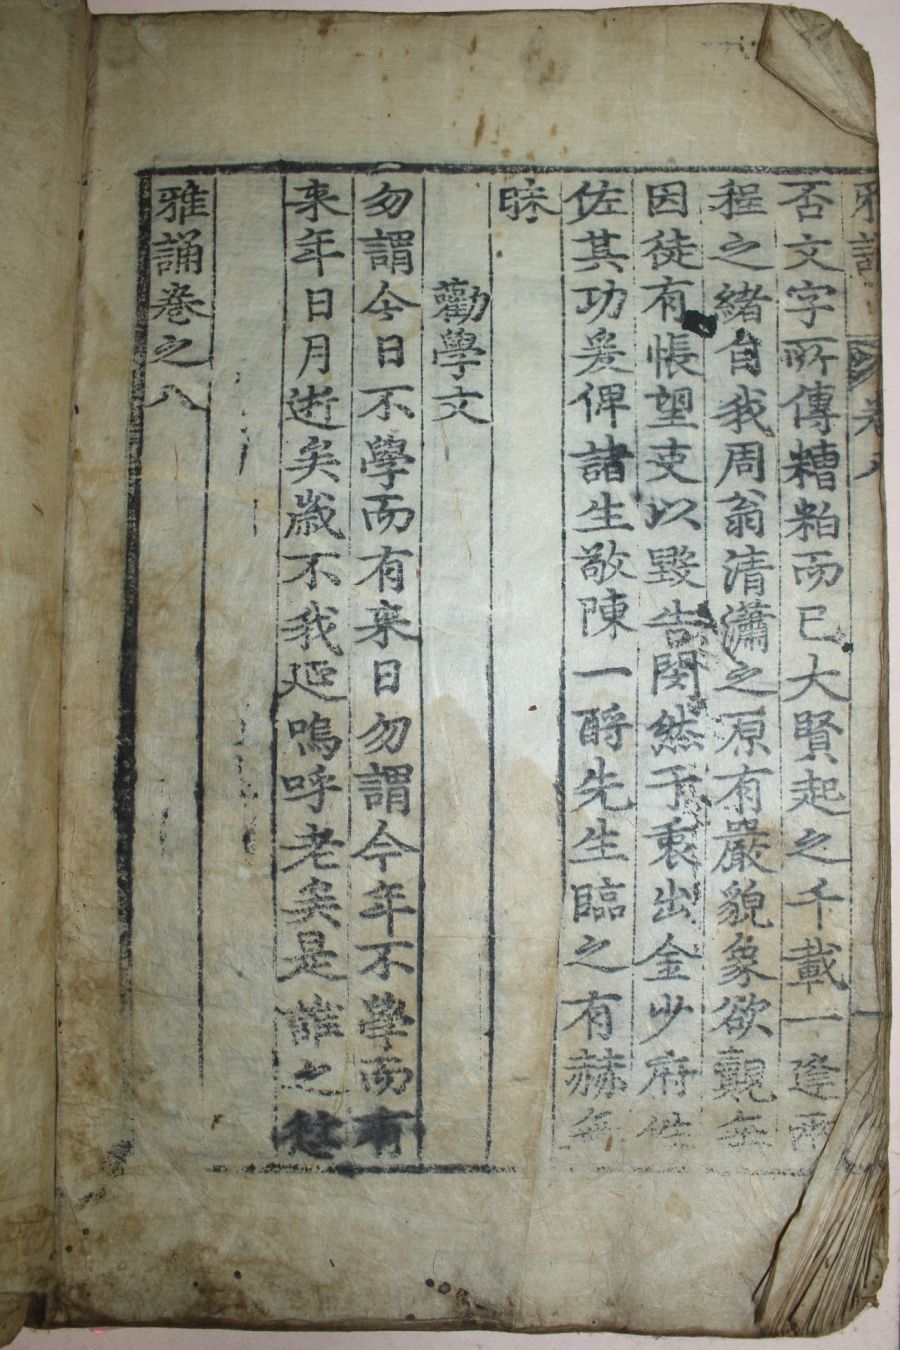 否文字所傳糟粕而已大賢起之千載一逢兩
程之緒自我周翁清瀟之原有嚴貌象欲觀無
因徒有悵望支以毀告閔然予衷出金少府俾
佐其功爰俾諸生敬陳一酹先生臨之有赫無
昧
勸學文
勿謂今日不學而有来日勿謂今年不學而有
来年日月逝矣歲不我延嗚呼老矣是誰之愆
雅誦卷之八